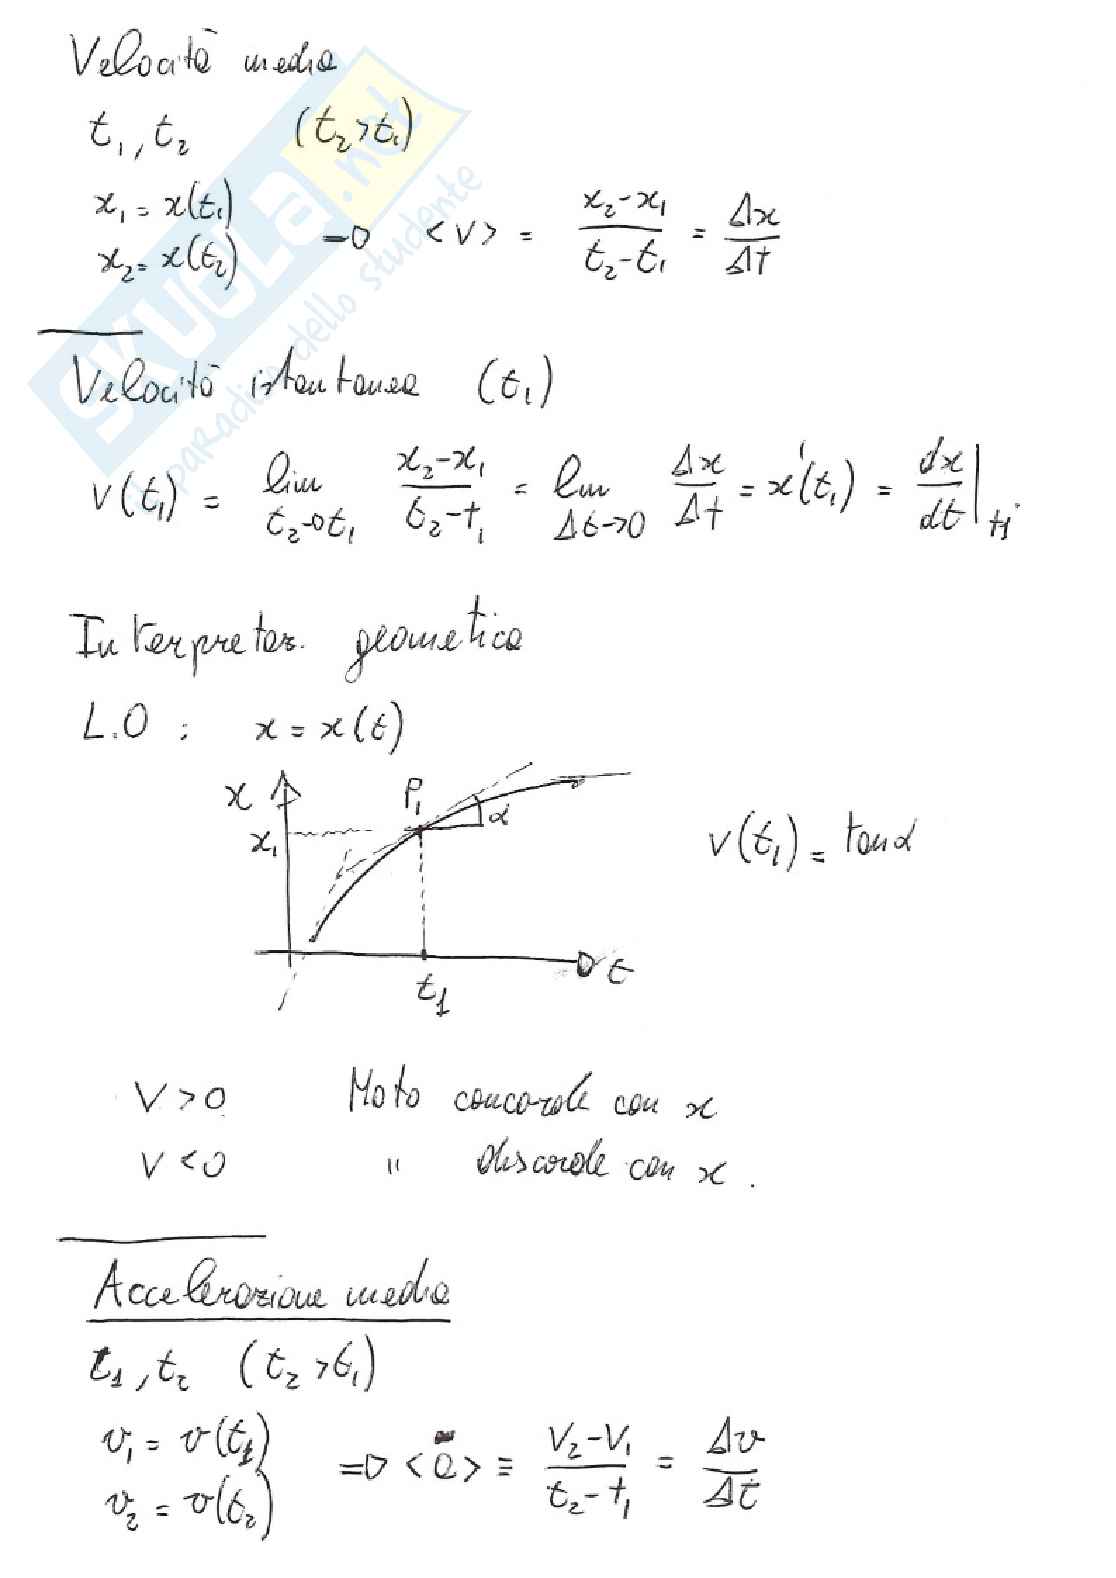 Velocità media
t₁, t₂ (t₂>t₁)
x₁ = x(t₁)
x₂ = x(t₂) ⇒ <v> = (x₂-x₁)/(t₂-t₁) = Δx/Δt
Velocità istantanea (t₁)
v(t₁) = lim t₂→t₁ (x₂-x₁)/(t₂-t₁) = lim Δt→0 Δx/Δt = x'(t₁) = dx/dt|t₁
Interpretaz. geometica
L.O : x = x(t)
x
P₁
x₁
α
v(t₁) = tanα
t
t₁
V>0 Moto concorde con x
V<0 " discorde con x.
Accelerazione media
t₁, t₂ (t₂>t₁)
v₁ = v(t₁)
v₂ = v(t₂) ⇒ <a> ≡ (V₂-V₁)/(t₂-t₁) = Δv/Δt
SKUOLA.net
il paradiso dello studente